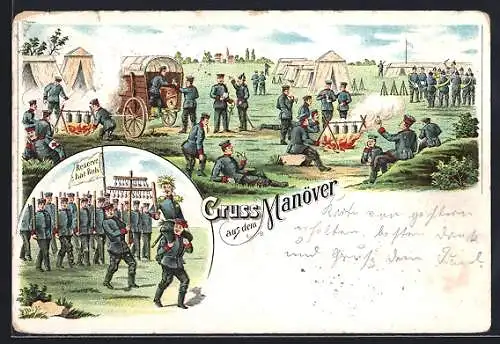 Reserve
hat Ruh
Gruss
aus dem
Manöver
Karte von gestern
erhalten, besten Dank
und Gruß dein